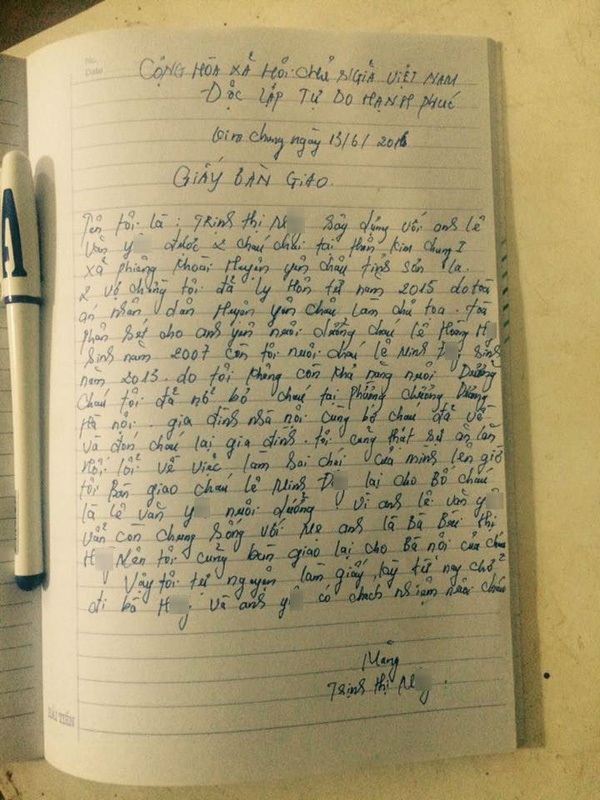 No.
Date
CỘNG HÒA XÃ HỎI CHỦ NGHĨA VIỆT NAM
ĐỘC LẬP TỰ DO HẠNH PHÚC
chung ngày 13/6/ 2016
GIẤY BÀN GIAO
Tên tôi là ; Trịnh thị M sây dựng với anh lê
Văn y được 2 cháu chái tại thôn Kim chung I
xã phiêng khoài Huyện yên châu tỉnh sơn la.
2 vợ chồng tôi đã ly Hôn từ năm 2015 do tòa
án nhân dân Huyện yên châu làm chủ tọa. tòa
phán sét cho anh yên nuôi dưỡng cháu lê Hoàng H
Sinh năm 2007 còn tôi nuôi cháu lê Minh Đ Sinh
năm 2013. do tôi không còn khả năng nuôi Dưỡng
cháu tôi đã bỏ cháu tại phường chương Dương
Hà nội. gia đình nhà nội cùng bố cháu đã về
và đón cháu lại gia đình. tôi cũng thật sự ăn lăn
hối lỗi về việc làm sai chái của mình lên giờ
tôi bàn giao cháu lê Minh Đ lại cho Bố cháu
là lê văn y nuôi dưỡng. vì anh lê văn y
vẫn còn chung sống với Mẹ anh là Bà Bùi thị
H Nên tôi cũng bàn giao lại cho Bà nội của cháu
Vậy tôi tự nguyện làm giấy, kỳ từ nay chở
đi bà H và anh y có chách nhiệm nuôi cháu
Trịnh thị M
HẢI TIẾN